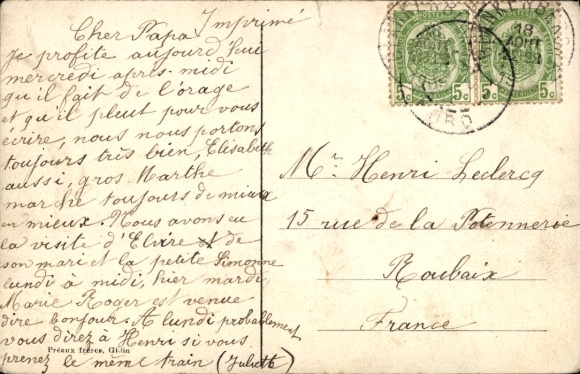 Imprimé
Cher Papa
Je profite aujourd'hui
mercredi après-midi
qu'il fait de l'orage
et qu'il pleut pour vous
écrire, nous nous portons
toujours très bien, Elisabeth
aussi, gros Marthe
marche toujours de mieux
en mieux. Nous avons eu
la visite d'Elvire & de
son mari et la petite Simonne
lundi à midi, hier mardi
Marie Roger est venue
dire bonjour. A lundi probablement
vous direz à Henri si vous
prenez le même train (Juliette)
Préaux frères, Ghlin
5c 5c 5c 5c
18
AOUT
NORD
BLANKENBERGHE
18
AOUT
Mr Henri Leclercq
15 rue de la Potennerie
Roubaix
France